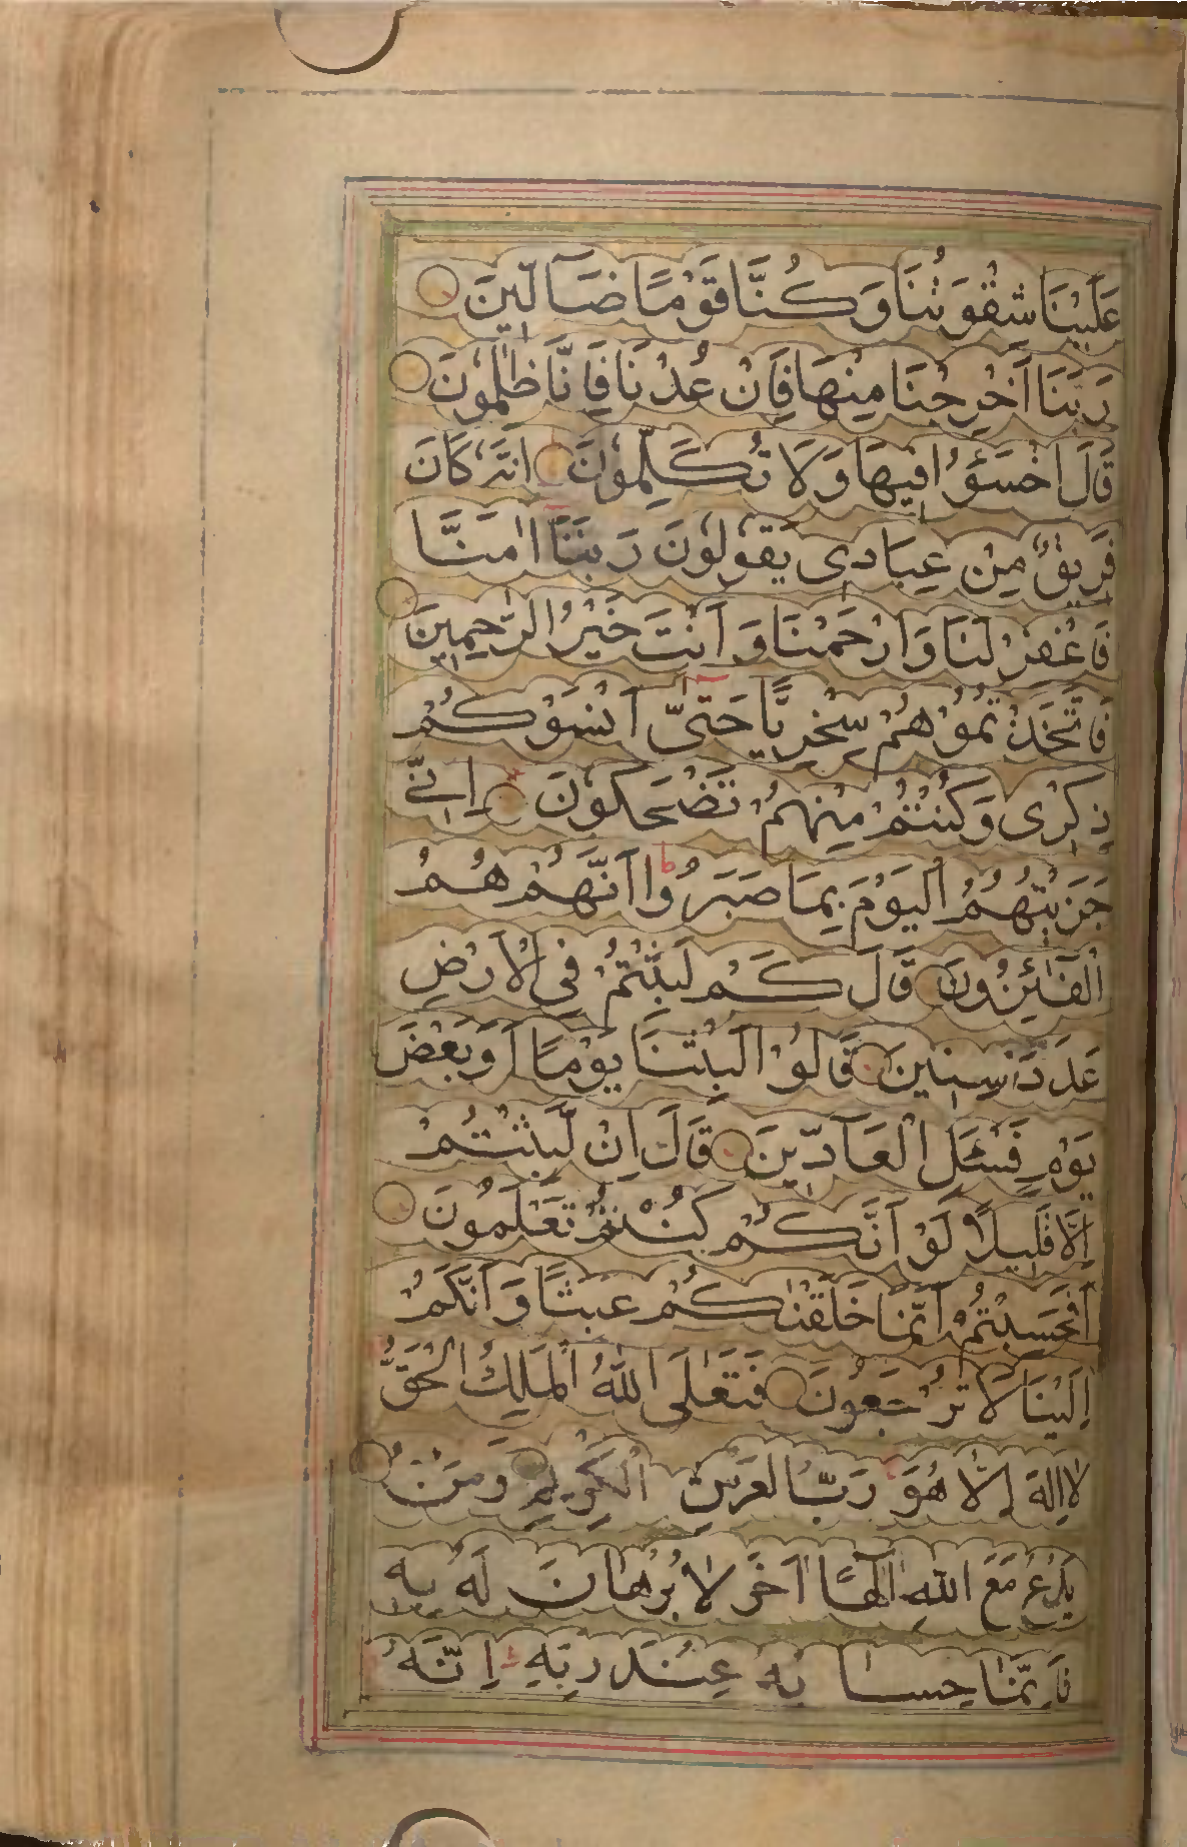 عَلَيْنَا شِقْوَتُنَا وَكُنَّا قَوْمًا ضَآلِّينَ
رَبَّنَا اَخْرِجْنَا مِنْهَا فَاِنْ عُدْنَا فَاِنَّا ظٰلِمُوْنَ
قَالَ اخْسَؤُا فِيهَا وَلَا تُكَلِّمُوْنَ اِنَّهُ كَانَ
فَرِيقٌ مِنْ عِبَادِى يَقُوْلُوْنَ رَبَّنَآ اٰمَنَّا
فَاغْفِرْ لَنَا وَارْحَمْنَا وَاَنْتَ خَيْرُ الرّٰحِمِينَ
فَاتَّخَذْتُمُوْهُمْ سِخْرِيًّا حَتّٰىٓ اَنْسَوْكُمْ
ذِكْرِى وَكُنْتُمْ مِنْهُمْ تَضْحَكُوْنَ اِنِّى
جَزَيْتُهُمُ الْيَوْمَ بِمَا صَبَرُوْا ط اَنَّهُمْ هُمُ
الْفَآئِزُوْنَ قٰلَ كَمْ لَبِثْتُمْ فِى الْاَرْضِ
عَدَدَ سِنِينَ قَالُوْا لَبِثْنَا يَوْمًا اَوْ بَعْضَ
يَوْمٍ فَسْئَلِ الْعَآدِّينَ قٰلَ اِنْ لَّبِثْتُمْ
اِلَّا قَلِيلًا لَوْ اَنَّكُمْ كُنْتُمْ تَعْلَمُوْنَ
اَفَحَسِبْتُمْ اَنَّمَا خَلَقْنٰكُمْ عَبَثًا وَاَنَّكُمْ
اِلَيْنَا لَا تُرْجَعُوْنَ فَتَعٰلَى اللّٰهُ الْمَلِكُ الْحَقُّ
لَا اِلٰهَ اِلَّا هُوَ رَبُّ الْعَرْشِ الْكَرِيمِ وَمَنْ
يَدْعُ مَعَ اللّٰهِ اِلٰهًا اٰخَرَ لَا بُرْهَانَ لَهُ بِهِ
فَاِنَّمَا حِسَابُهُ عِنْدَ رَبِّهِ اِنَّهُ